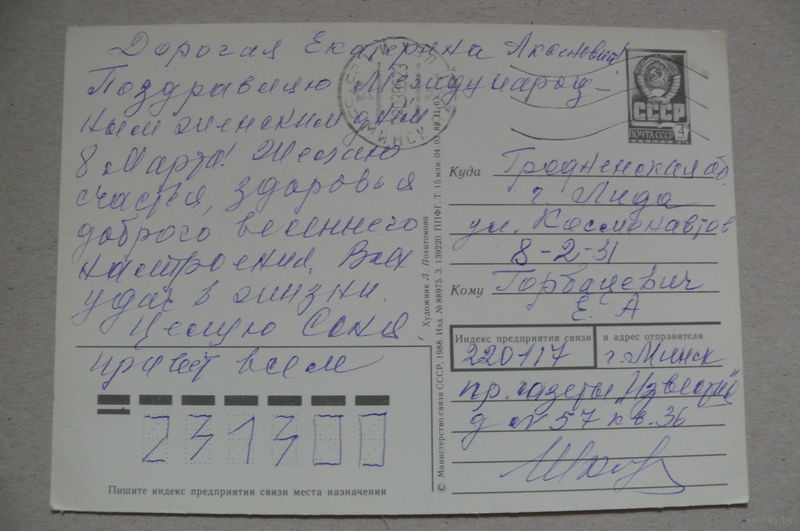 Дорогая Екатерина Аксеновна!
Поздравляю Международ-
ным женским днем
8 Марта! Желаю
счастья, здоровья
доброго весеннего
настроения. Всех
удач в жизни.
Целую Соня.
привет всем
МИНСК
СССР
ПОЧТА СССР
4
Куда Гродненская об
г. Лида
ул. Космонавтов
8-2-31
Кому Горбацевич
Е. А
Индекс предприятия связи и адрес отправителя
220117 г. Минск
пр. газеты "Известий"
д № 57 кв. 36
231300
Пишите индекс предприятия связи места назначения
Художник Л. Политонова
© Министерство связи СССР, 1988. Изд. № 88975. З. 139220. ППФГ. Т. 15 млн. 04